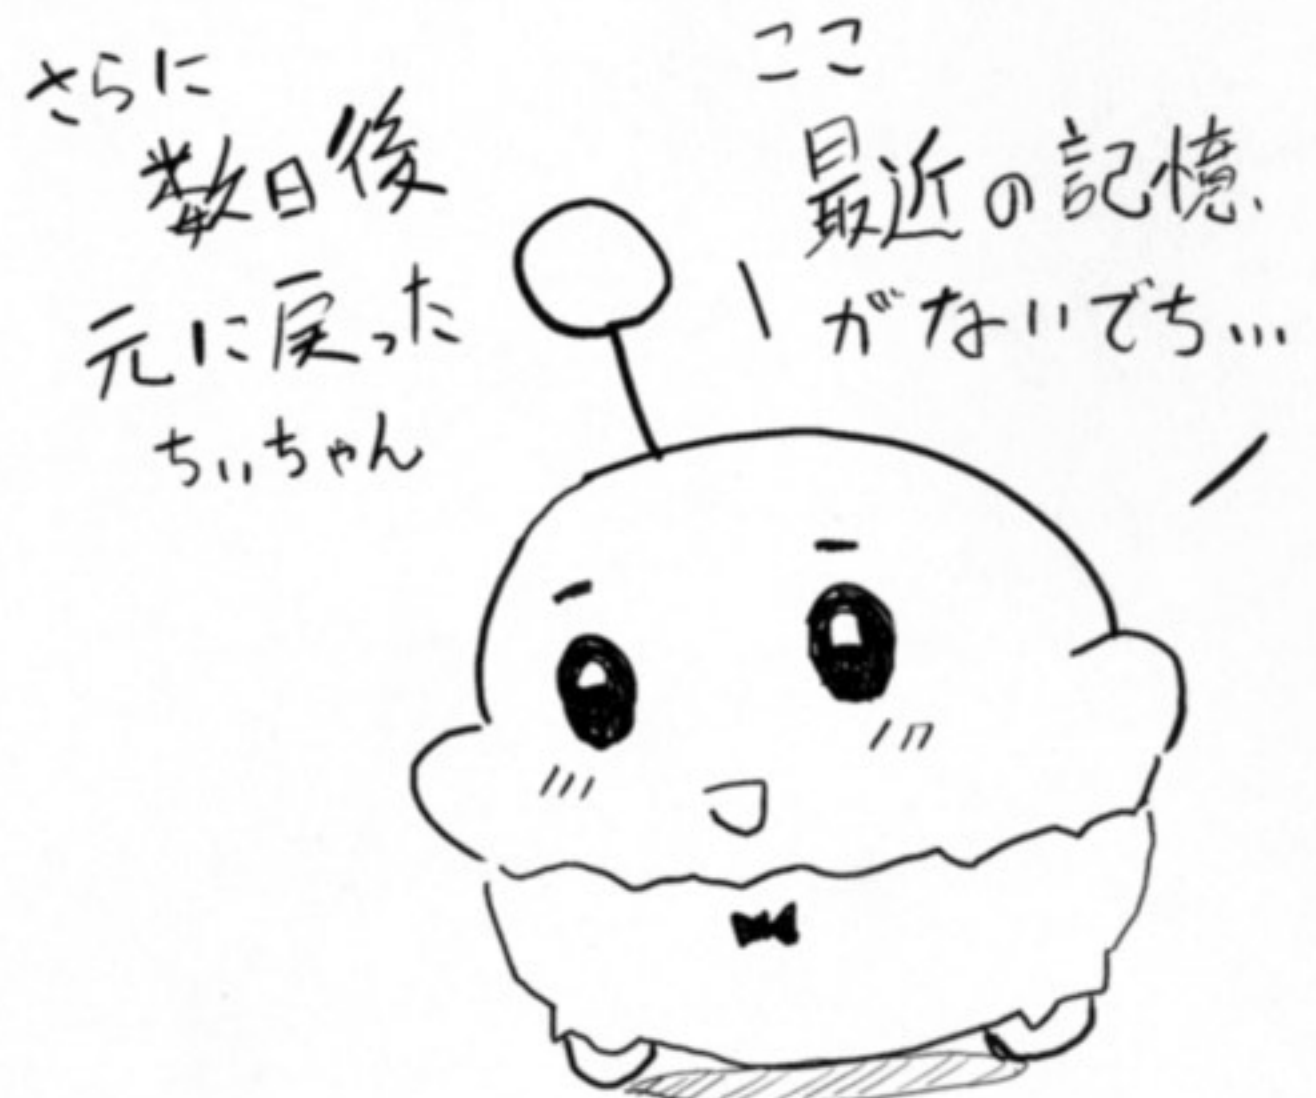 さらに
数日後
元に戻った
ちぃちゃん
ここ
最近の記憶
がないでち...